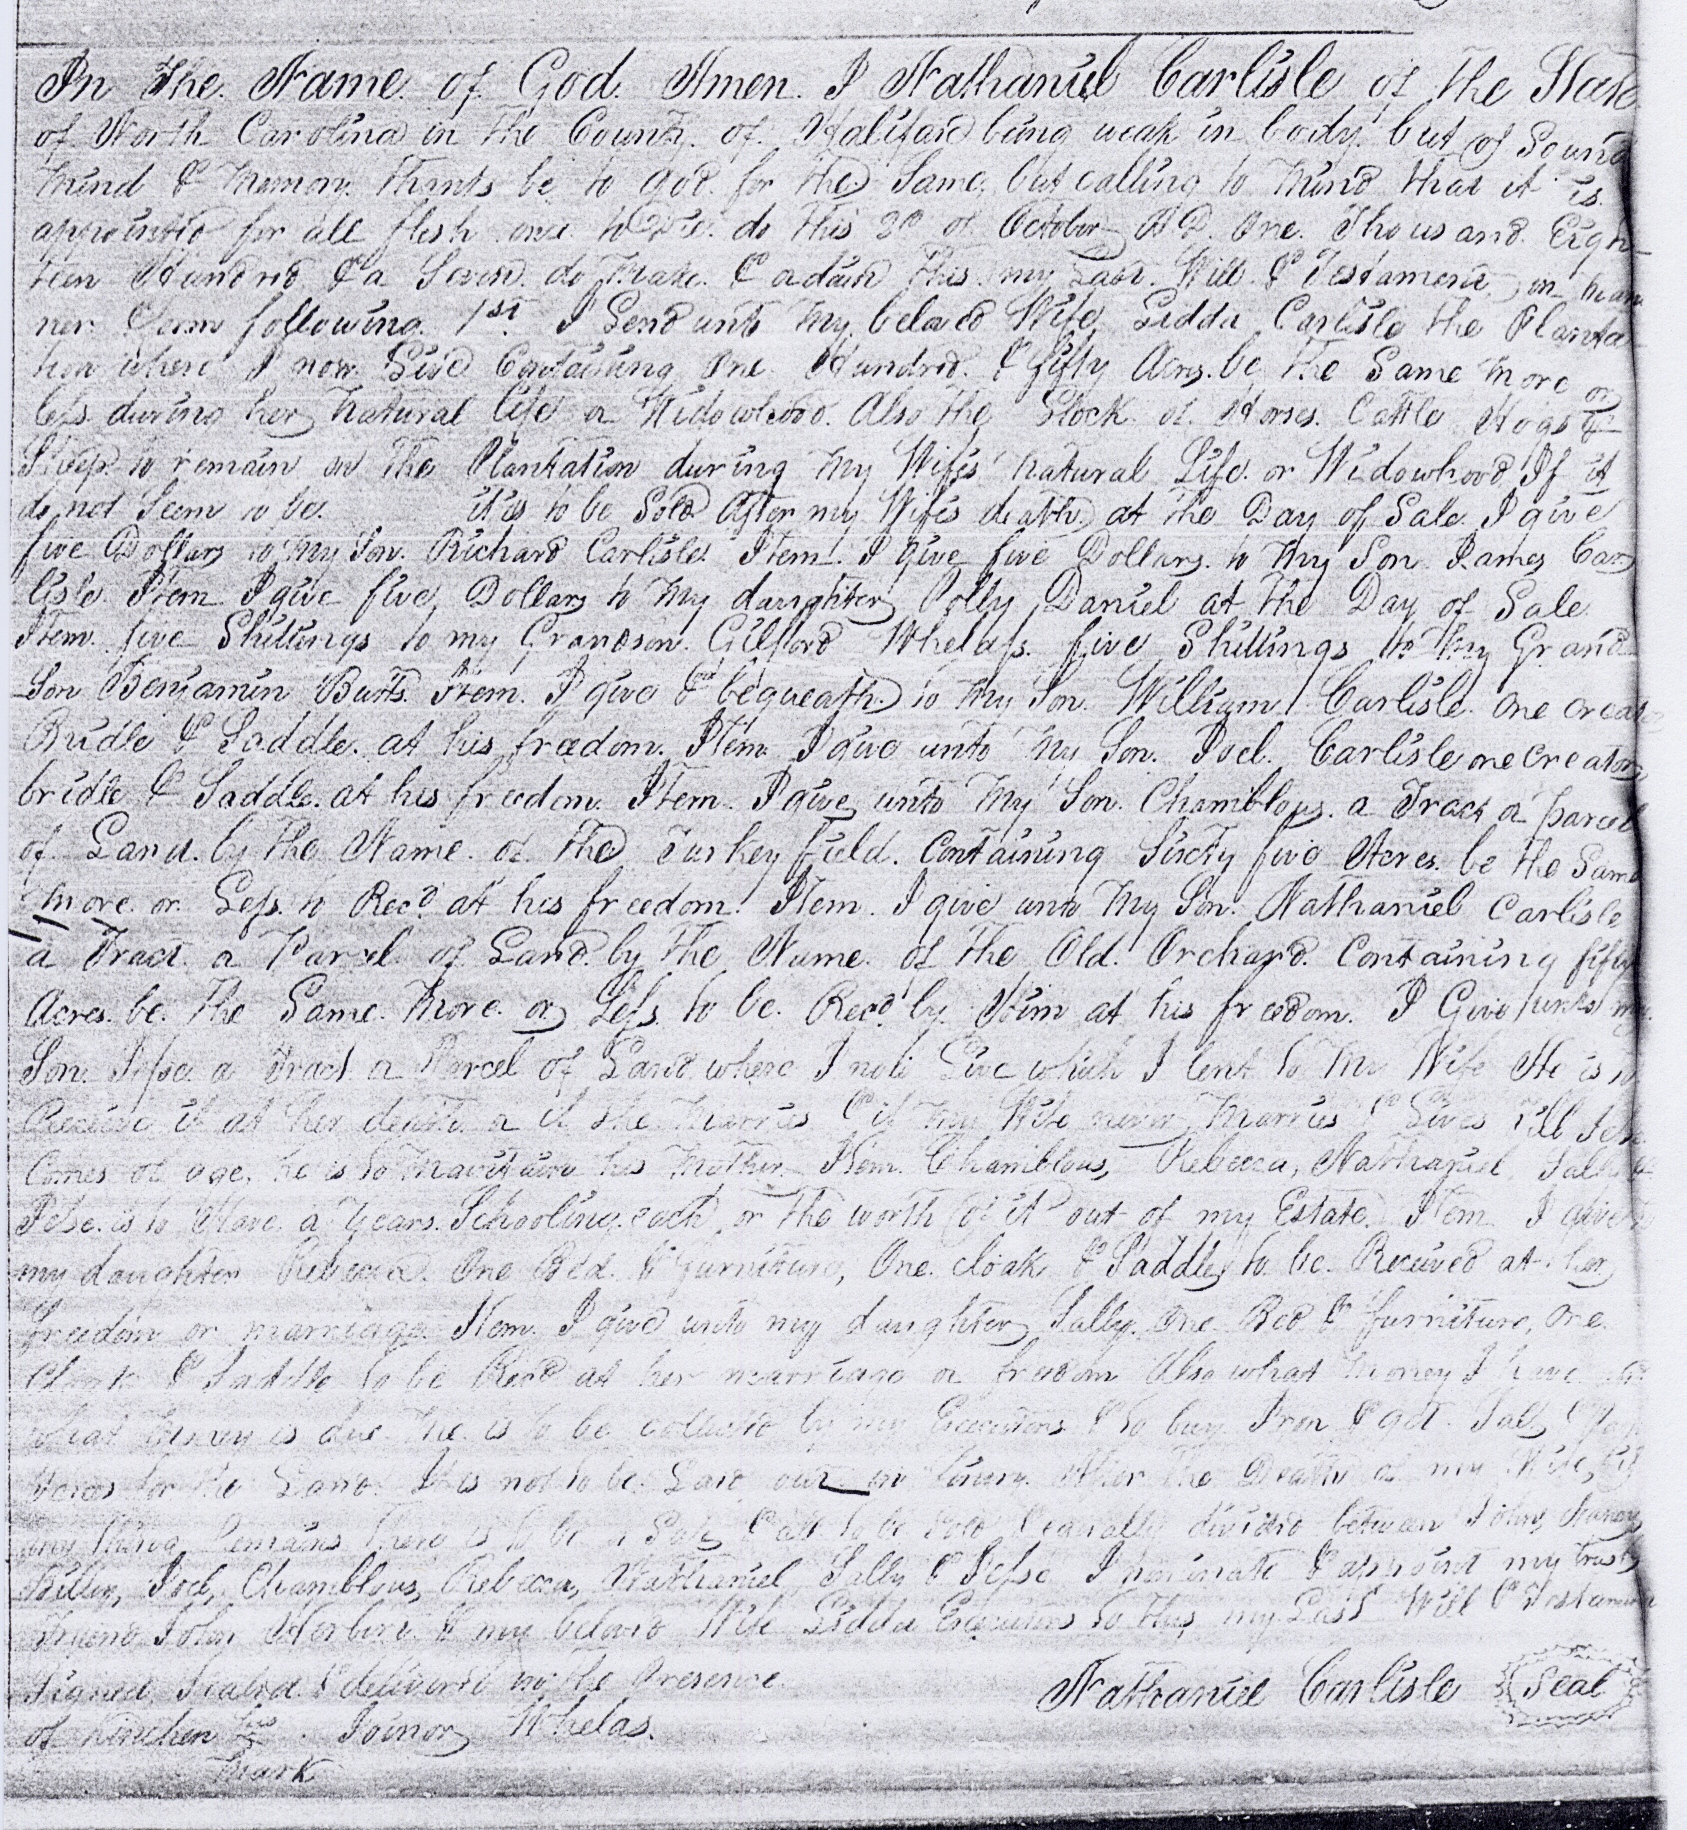 In the Name of God Amen. I Nathaniel Carlisle of the State
of North Carolina in the County of Halifax being weak in body but of Sound
mind & memory thanks be to god for the Same, but calling to mind that it is
appointed for all flesh once to Die do this 2d of October A D. One Thousand Eigh
teen Hundred & a Seven do make & adain this my Last Will & Testament in man
ner & form following 1st. I Lend unto my beloved Wife Lidda Carlisle the Planta
tion where I now Live Containing One Hundred & fifty Acres be the Same more or
less during her natural life or Widowhood. Also the Stock of Horses Cattle Hogs &
Sheep to remain on the Plantation during my Wifes natural Life or Widowhood If it
do not Seem to be it is to be Sold After my Wifes death, at the Day of Sale I give
five Dollars to my Son Richard Carlisle Item I give five Dollars to my Son James Car
lisle Item I give five Dollars to my daughter Polly Daniel at the Day of Sale
Item five Shillings to my Grandson Gilford Whelass five Shillings to my Grand
Son Benjamin Butts Item. I give & bequeath to my Son William Carlisle one creator
Bridle & Saddle at his freedom. Item I give unto my Son Joel Carlisle one creator
bridle & Saddle at his freedom Item I give unto my Son Chamblous a Tract or parcel
of Land by the Name of the Turkey field Containing Sixty five Acres be the Same
more or Less to Recd. at his freedom. Item I give unto my Son Nathaniel Carlisle
a Tract or Parcel of Land by the Name of the Old Orchard Containing fifty
Acres be the Same More or Less to be Recd. by Him at his freedom. I Give unto my
Son Jesse a Tract or Parcel of Land where I now Live which I lent to my Wife He is to
Receive it at her death or if she marries & if my Wife never Marries & Lives till Jesse
Comes of age, he is to maintain his Mother Item. Chamblous, Rebecca, Nathaniel, Sally &
Jesse is to Have a years Schooling each or the worth of it out of my Estate Item I give to
my daughter Rebecca One Bed & furniture, One cloak & Saddle to be Received at her
freedom or marriage Item I give unto my daughter Sally One Bed & furniture, One
Cloak & Saddle to be Recd at her marriage or freedom Also what money I have &
what money is due me is to be collected by my Executors & to buy Iron & get
for the Land. It is not to be Laid out in After the Death of my Wife, if
any thing Remains there is to be a Sale & all to be Sold & equally divided between John, Nancy
Billy, Joel, Chamblous, Rebecca, Nathaniel Sally & Jesse I nominate & appoint my trusty
friend John & my beloved Wife Lidda Executors to this my Last Will & Testament
Signed Sealed & delivered in the Presence
Nathaniel Carlisle Seal
of Kinchen his Joiner Whelas.
mark